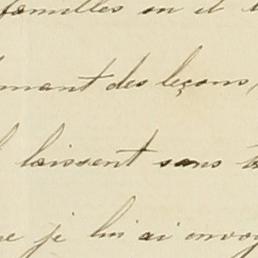 familles où il
nant des leçons,
laissent sans
je lui ai envoy